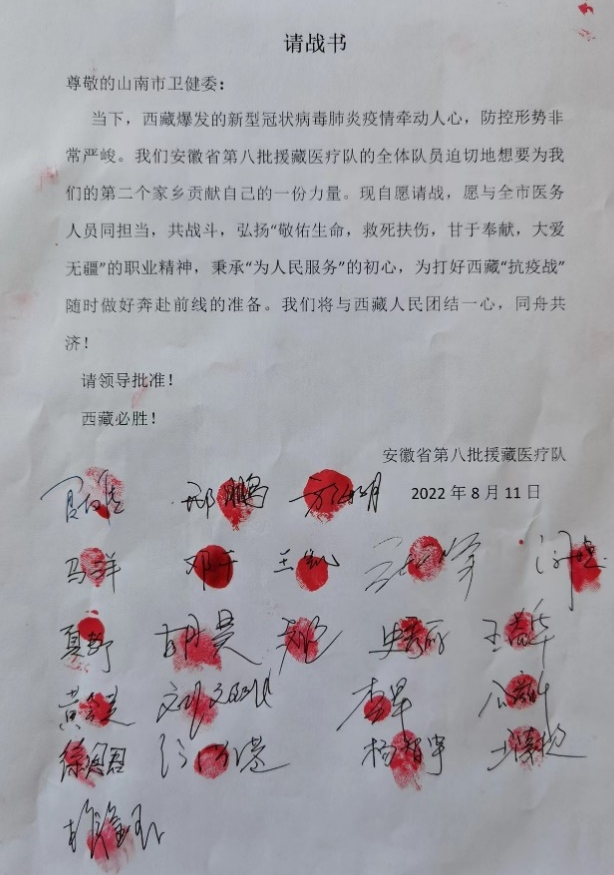 请战书
尊敬的山南市卫健委：
当下，西藏爆发的新型冠状病毒肺炎疫情牵动人心，防控形势非
常严峻。我们安徽省第八批援藏医疗队的全体队员迫切地想要为我
们的第二个家乡贡献自己的一份力量。现自愿请战，愿与全市医务
人员同担当，共战斗，弘扬“敬佑生命，救死扶伤，甘于奉献，大爱
无疆”的职业精神，秉承“为人民服务”的初心，为打好西藏“抗疫战”
随时做好奔赴前线的准备。我们将与西藏人民团结一心，同舟共
济！
请领导批准！
西藏必胜！
安徽省第八批援藏医疗队
邓鹏
2022年8月11日
马群 邓千 王凯
夏野 胡昊 史秀丽 王益华
黄 李早
徐润君 杨智宇